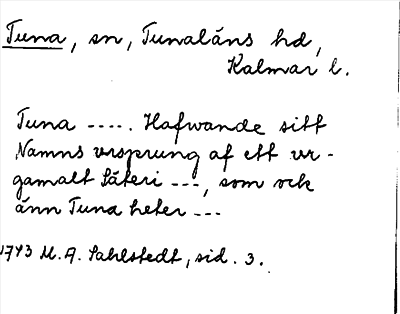 Tuna, sn, Tunaläns hd,
Kalmar l.
Tuna ----. Hafwande sitt
Namns ursprung af ett ur-
gamalt Säteri ---, som ock
änn Tuna heter ---
1743 M. A. Sahlstedt, sid. 3.